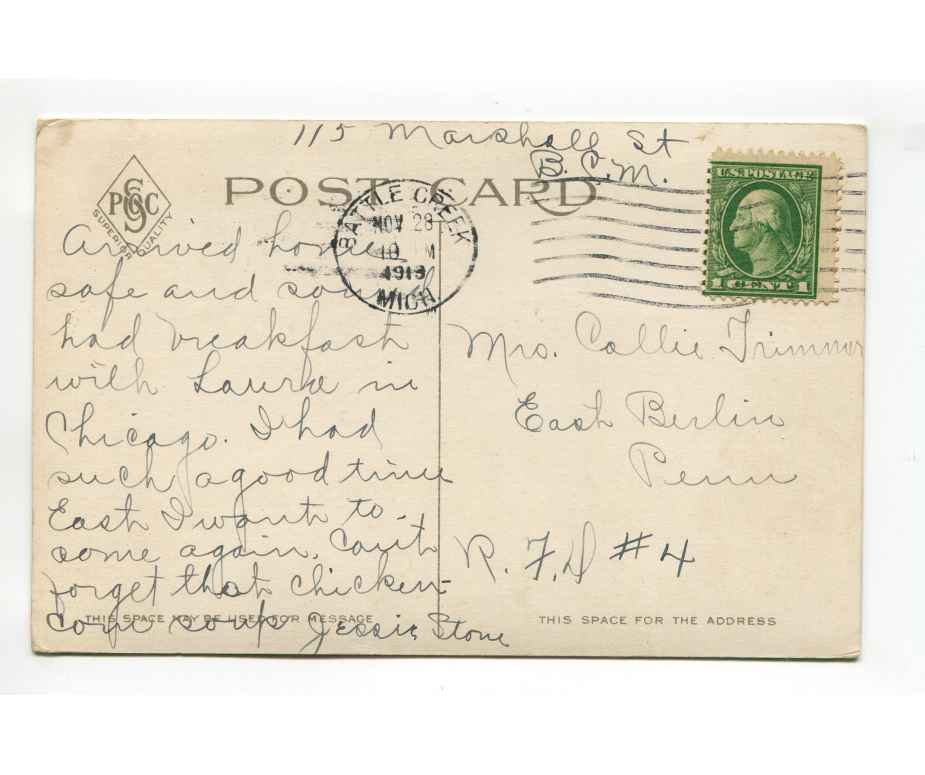 115 Marshall St
B.C.M.
POST CARD
PSGC
SUPERIOR QUALITY
BATTLE CREEK
NOV 28
10 M
1913
MICH
U.S. POSTAGE
1 CENT 1
Arrived home
safe and
had breakfast
with Laura in
Chicago. I had
such a good time
East I want to
come again. Can't
forget that chicken-
corn soup Jessie Stone
THIS SPACE MAY BE USED FOR MESSAGE
Mrs. Callie Trimmer
East Berlin
Penn
R. F. D #4
THIS SPACE FOR THE ADDRESS